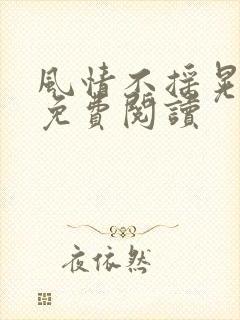 風情不搖晃
免費閱讀
夜依然